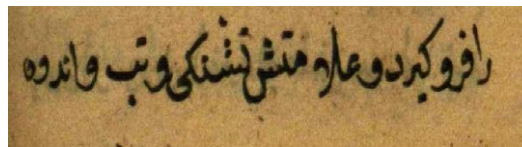 را فرو کیرد و علامتش تشنکی و تب و اندوه